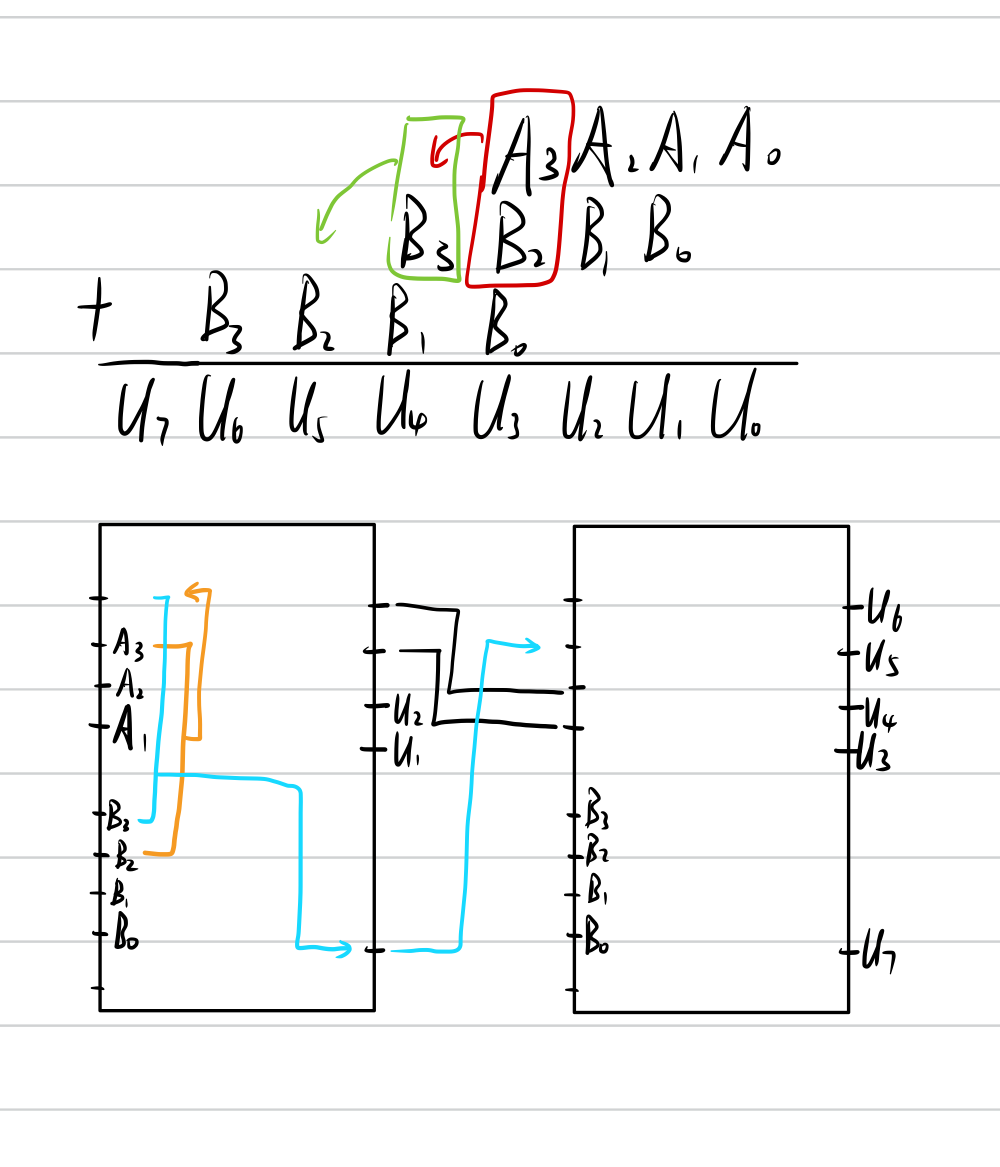 A₃ A₂ A₁ A₀
B₃ B₂ B₁ B₀
+ B₃ B₂ B₁ B₀
U₇ U₆ U₅ U₄ U₃ U₂ U₁ U₀
A₃
A₂
A₁
B₃
B₂
B₁
B₀
U₂
U₁
B₃
B₂
B₁
B₀
U₆
U₅
U₄
U₃
U₇